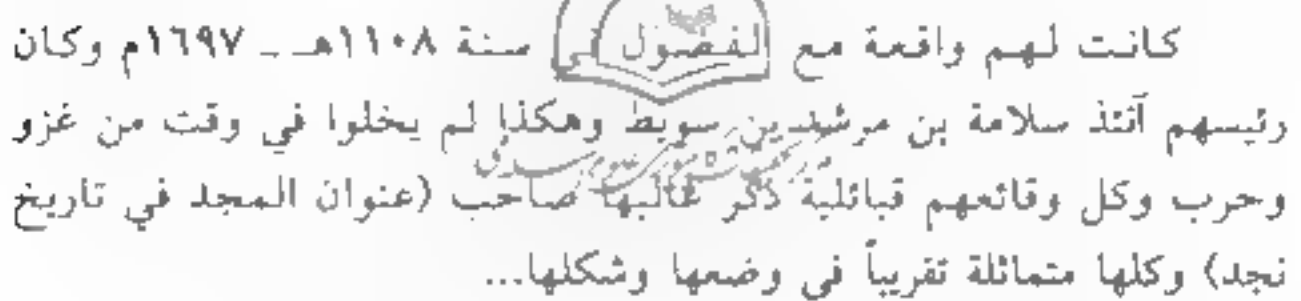 كانت لهم واقعة مع الفضول في سنة ١١٠٨هـ ـ ١٦٩٧م وكان
رئيسهم آنئذ سلامة بن مرشد بن سويط وهكذا لم يخلوا في وقت من غزو
وحرب وكل وقائعهم قبائلية ذكر غالبها صاحب (عنوان المجد في تاريخ
نجد) وكلها متماثلة تقريباً في وضعها وشكلها...